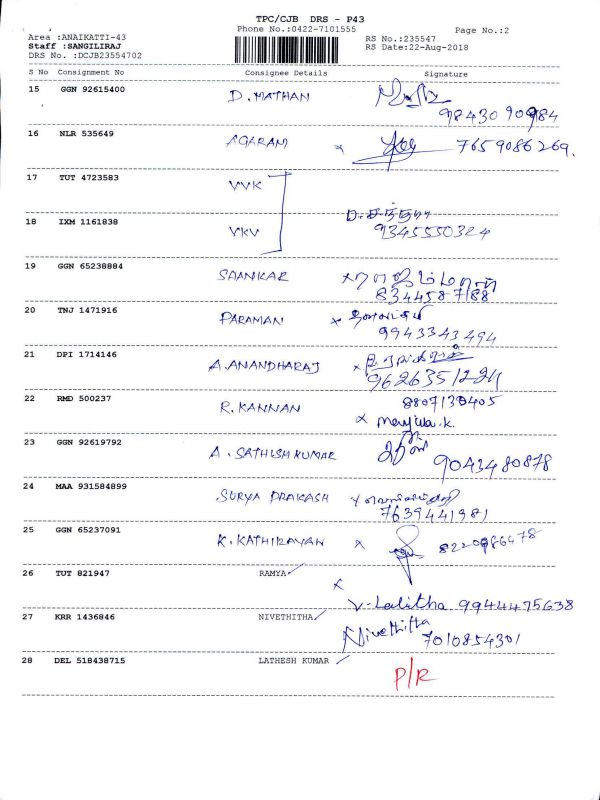 TPC/CJB DRS - P43
Phone No.:0422-7101555
Page No.:2
Area :ANAIKATTI-43
RS No.:235547
Staff :SANGILIRAJ
RS Date:22-Aug-2018
DRS No. :DCJB23554702
S No Consignment No Consignee Details Signature
15 GGN 92615400 D. MATHAN
98430 90984
16 NLR 535649 AGARAM x 7659086269.
17 TUT 4723583 VVK
18 IXM 1161838 VKV
9345550324
19 GGN 65238884 SAANKAR x
8344587188
20 TNJ 1471916 PARAMAN x
9943343494
21 DPI 1714146 A.ANANDHARAJ x
22 RMD 500237 R. KANNAN 8807130405
x Manjula.k.
23 GGN 92619792 A. SATHISH KUMAR 9043480878
24 MAA 931584899 SURYA PRAKASH x
7639441981
25 GGN 65237091 K. KATHIRAVAN x
26 TUT 821947 RAMYA
x
V-Lalitha 9944475638
27 KRR 1436846 NIVETHITHA Nivethitha
7010854301
28 DEL 518438715 LATHESH KUMAR P/R